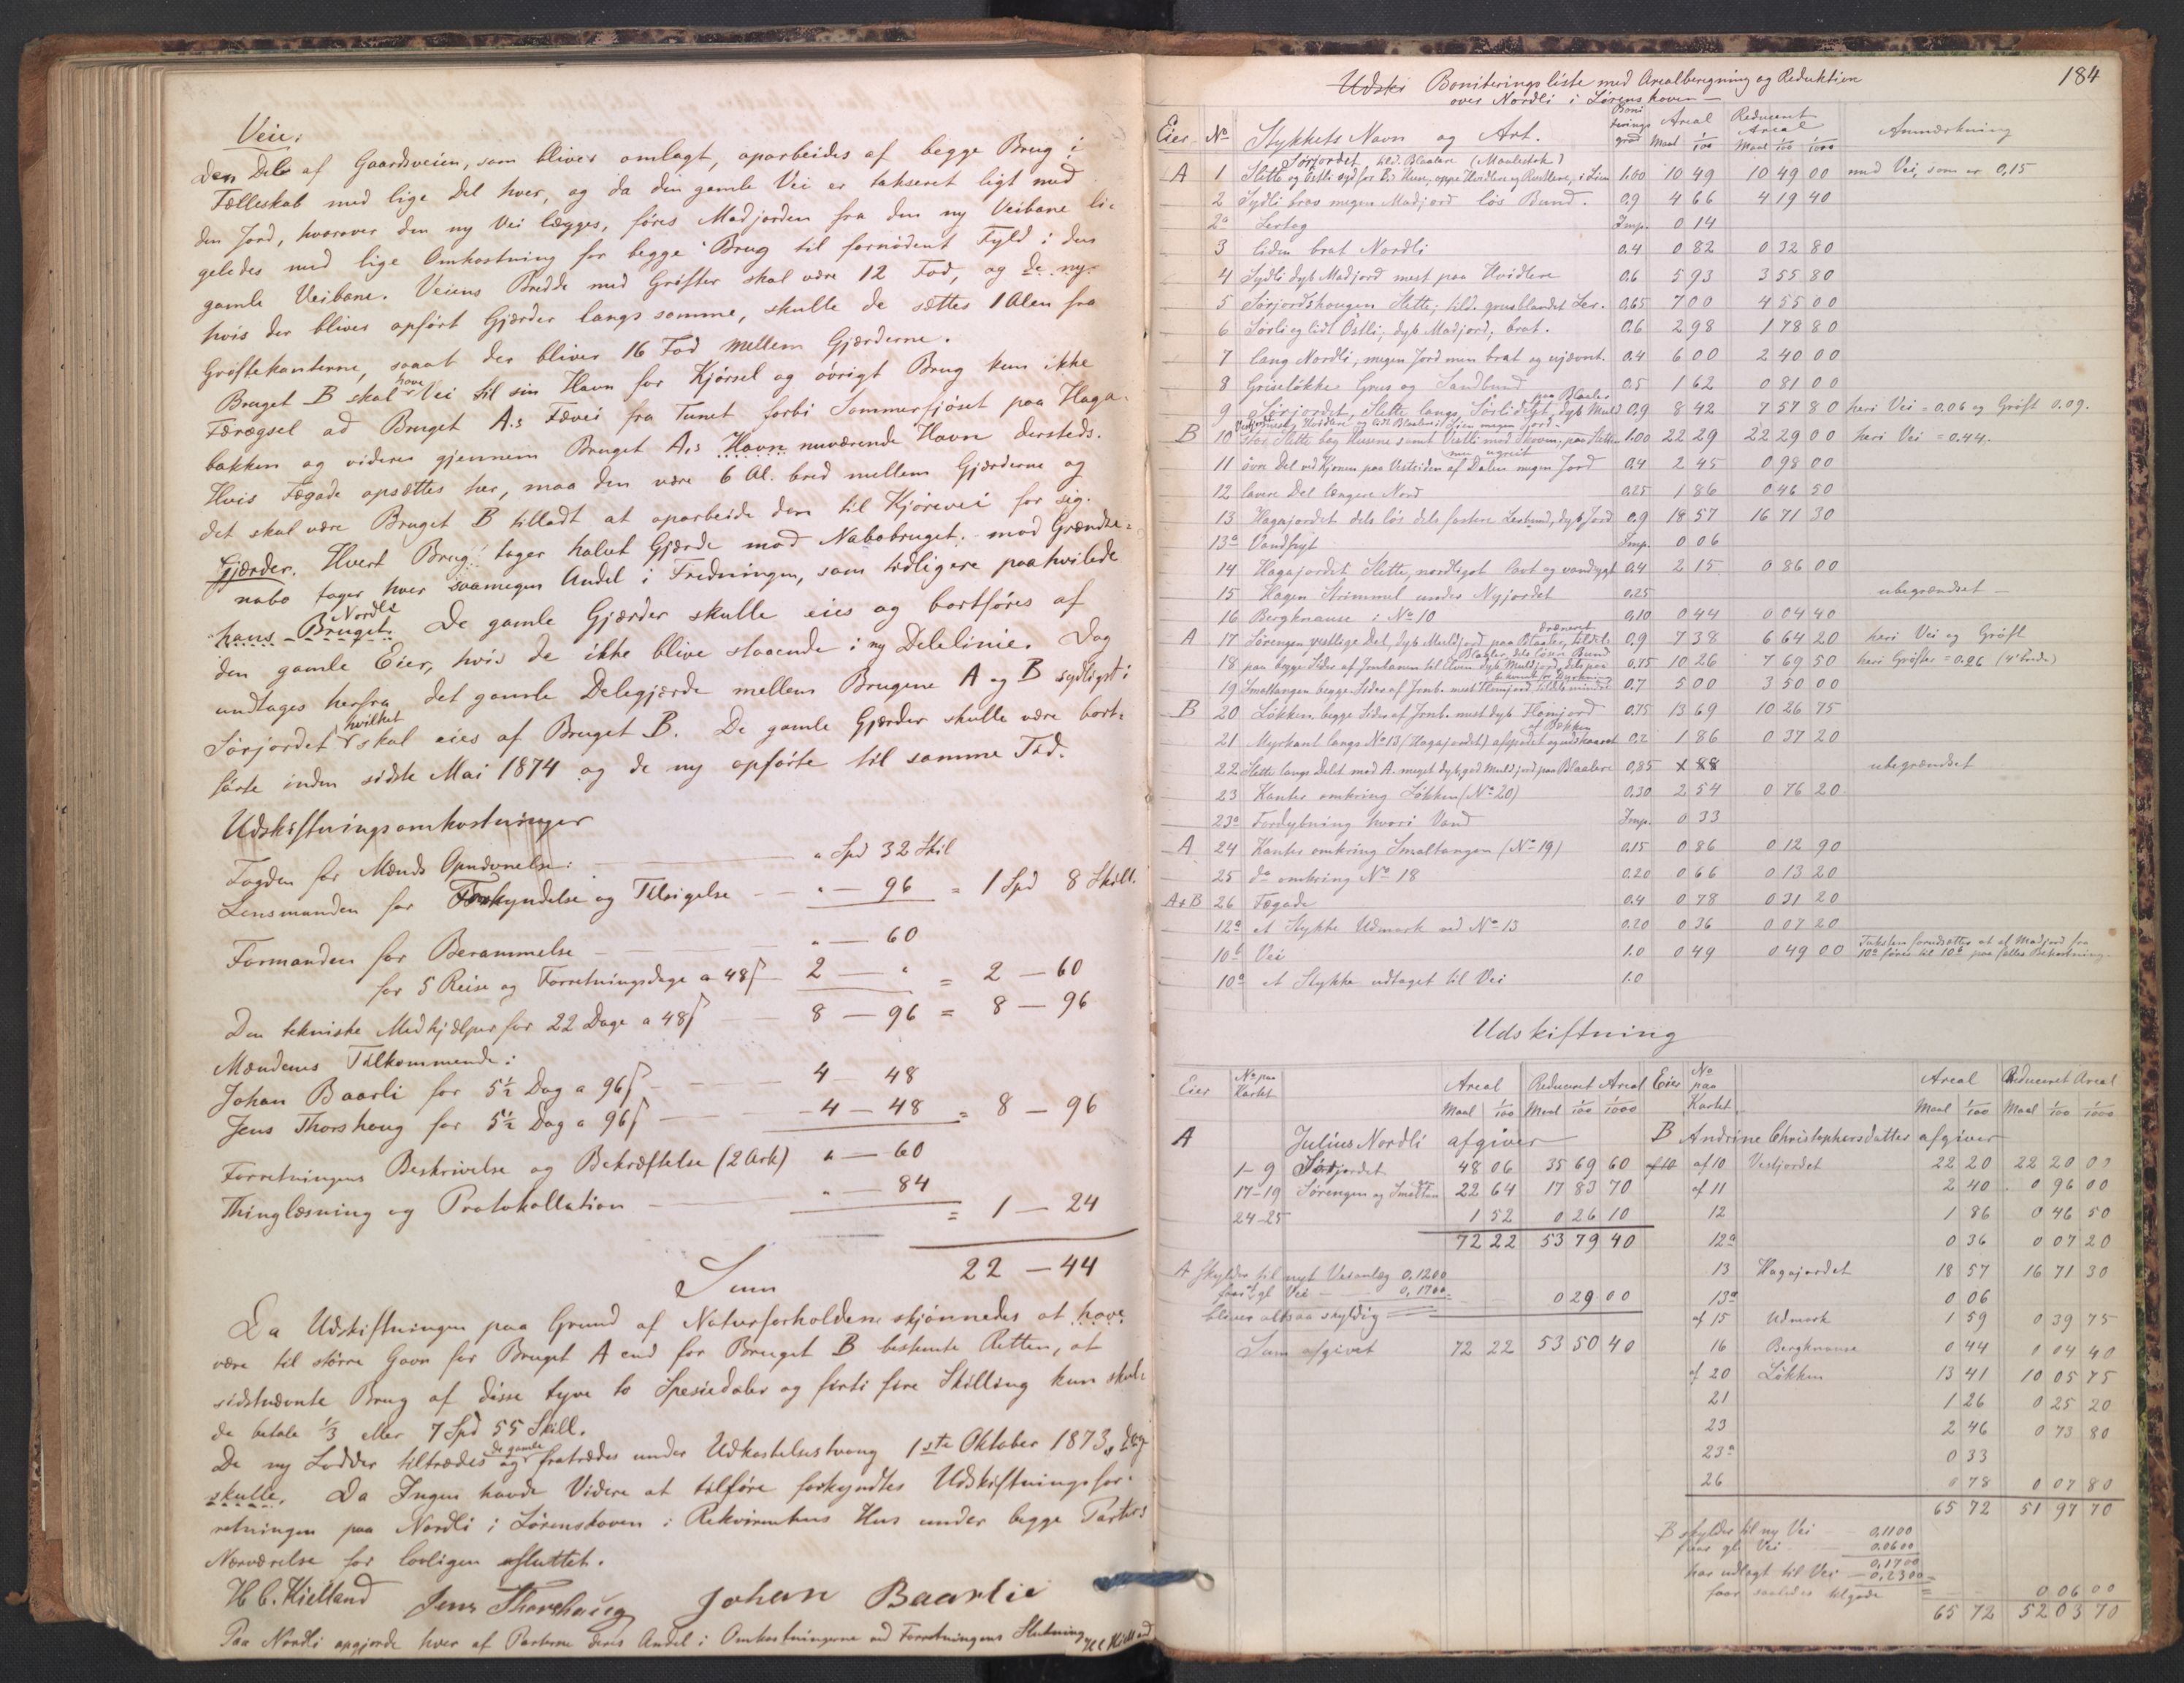 Veie:
Den Del af Gaardsveien, som bliver omlagt, oparbeides af begge Brug i
Fælleskab med lige Del hver, og da den gamle Vei er takseret ligt med
den Jord, hvorover den ny Vei lægges, føres Madjorden fra den ny Veibane li-
geledes med lige Omkostning for begge Brug til fornødent Fyld i den
gamle Veibane. Veiens Bredde med Grøfter skal være 12 Fod, og de ny-
hvis der bliver opført Gjærder langs samme, skulle de sættes 1 Alen fra
Grøftekanterne, saaat der bliver 16 Fod mellem Gjærderne.
Bruget B skal have Vei til sin Havn for Kjørsel og øvrigt Brug kun ikke
Færægsel ad Bruget A.s Fævei fra Tunet forbi Sommerfjøset paa Haga-
bakken og videre gjennem Bruget A.s Havn nuværende Havn dersteds.
Hvis Fægade opsættes her, maa den være 6 Al. bred mellem Gjærderne og
det skal være Bruget B tilladt at oparbeide den til Kjørevei for sig.
Gjærder. Hvert Brug tager halvt Gjærde mod Nabobruget. mod Grændse-
nabo tager hver saamegen Andel i Fredningen, som tidligere paahvilede
hans Bruget. Nordli De gamle Gjærder skulle eies og bortføres af
den gamle Eier, hvis de ikke blive staaende i ny Delelinie. Dog
undtages herfra det gamle Delegjærde mellem Brugene A og B sydligst i
Sørjordet hvilket skal eies af Bruget B. De gamle Gjærder skulle være bort-
førte inden sidste Mai 1874 og de ny opførte til samme Tid.
Udskiftningsomkostninger
Fogden for Mænds Opnævnelse: " Spd 32 Skil
Lensmanden for Forkyndelse og Tilsigelse " — 96 = 1 Spd 8 Skill.
Formanden for Berammelse " — 60
for 5 Reise og Forretningsdage a 48ß 2 — " = 2 — 60
Den tekniske Medhjælper for 22 Dage a 48ß 8 — 96 = 8 — 96
Mændenes Tilkommende:
Johan Baarli for 5½ Dag a 96ß 4 48
Jens Thorshaug for 5½ Dag a 96ß 4 — 48 = 8 — 96
Forretningens Beskrivelse og Bekræftelse (2 Ark) " — 60
Thinglæsning og Protokollation " — 84 = 1 — 24
Sum 22 — 44
Da Udskiftningen paa Grund af Naturforholdene skjønnedes at have
være til større Gavn for Bruget A end for Bruget B bestemte Retten, at
sidstnævnte Brug af disse tyve to Spesiedaler og firti fire Skilling kun skul-
de betale ⅓ eller 7 Spd 55 Skill.
De ny Lodder tiltrædes og de gamle fratrædes under Udkastelsestvang 1ste Oktober 1873,
skulle. Da Ingen havde Videre at tilføre forkyndtes Udskiftningsfor-
retningen paa Nordli i Lørenskoven i Rekvirentens Hus under begge Parters
Nærværelse for lovligen sluttet.
H C. Kielland Jens Thorshaug Johan Baarlie
Paa Nordli opgjorde hver af Parterne deres Andel i Omkostningerne ved Forretningens Slutning
184
Udski Boniteringsliste med Arealberegning og Reduktion
over Nordli i Lørenskoven —
Eier No Stykkets Navn og Art. Boniteringsgrad Areal Maal 1/100 Reduceret Areal Maal 1/100 1/1000 Anmærkning
A 1 Sørjordet, tild. Blaalere (Maalestok) Slette og Østli syd for B.s Huse, oppe Hvidlere og Rødlere, i Lien 1.00 10 49 10 49 00 med Vei, som er 0,15
2 Sydli brav megen Madjord løs Bund. 0.9 4 66 4 19 40
2a Lertag Imp. 0 14
3 liden brat Nordli 0.4 0 82 0 32 80
4 Sydli dyb Madjord mest paa Hvidlere 0.6 5 93 3 55 80
5 Sørjordshaugen Slette, tild. grusblandet Ler. 0.65 7 00 4 55 00
6 Sørli og lidt Østli, dyb Madjord, brat. 0.6 2 98 1 78 80
7 lang Nordli, megen Jord men brat og ujævnt. 0.4 6 00 2 40 00
8 Griseløkke Grus og Sandbund 0.5 1 62 0 81 00
9 Sørjordet, Slette langs Sørlidelet, dyb Muld paa Blaaler 0.9 8 42 7 57 80 heri Vei = 0.06 og Grøft 0.09.
B 10 Vestjordet stor Slette bag Husene samt Vestli mod Skoven. paa Sletten 1.00 22 29 22 29 00 heri Vei = 0.44.
11 øvre Del ved Kjonen paa Vestsiden af Dalen megen Jord men ugreit 0.4 2 45 0 98 00
12 lavere Del længere Nord 0.25 1 86 0 46 50
13 Hagajordet dels løs dels fastere Lerbund, dyb Jord 0.9 18 57 16 71 30
13a Vandhyt Imp. 0 06
14 Hagajordet Slette, nordligst lavt og vandsygt 0.4 2 15 0 86 00
15 Hagen Strimmel under Nyjordet 0.25 ubegrændset —
16 Bergknause i No 10 0.10 0 44 0 04 40
A 17 Sørengen vestlige Del, dyb Muldjord paa Blaaler, tildels drænert 0.9 7 38 6 64 20 heri Vei og Grøft
18 paa begge Sider af Jernbanen til Elven dyb Muldjord, dels paa Blaaler, dels løsere Bund 0.75 10 26 7 69 50 heri Grøfter = 0.26
19 Smaltangen begge Sider af Jernb. mest Flomjord, tildels mindre bekvemt for Dyrkning 0.7 5 00 3 50 00
B 20 Løkken begge Sider af Jernb. mest dyb Flomjord 0.75 13 69 10 26 75
21 Myrkant langs No 13 (Hagajordet) afspadet og udskaaret af Bækken 0.2 1 86 0 37 20
22 Slette langs Delet mod A. meget dyb, god Muldjord paa Blaalere 0,85 ubegrændset
23 Kanter omkring Løkken (No 20) 0.30 2 54 0 76 20
23a Fordybning hvori Vand Imp. 0 33
A 24 Kanter omkring Smaltangen (No 19) 0.15 0 86 0 12 90
25 do omkring No 18 0.20 0 66 0 13 20
A+B 26 Fægade 0.4 0 78 0 31 20
12a et Stykke Udmark ved No 13 0.20 0 36 0 07 20
10b Vei 1.0 0 49 0 49 00 Taksten forudsætter at al Madjord fra 10a føres til 10b paa fælles Bekostning.
10a et Stykke udtaget til Vei 1.0
Udskiftning
Eier No paa Kartet Areal Maal 1/100 Reduceret Areal Maal 1/100 1/1000 Eier No paa Kartet Areal Maal 1/100 Reduceret Areal Maal 1/100 1/1000
A Julius Nordli afgiver
1-9 Sørjordet 48 06 35 69 60
17-19 Sørengen og Smaltan 22 64 17 83 70
24-25 1 52 0 26 10
72 22 53 79 40
A skylder til nyt Veianlæg 0.1200
faar gl Vei 0,1700
bliver altsaa skyldig 0 29 00
Sum afgivet 72 22 53 50 40
B Andrine Christophersdatter afgiver
af 10 af 10 Vestjordet 22 20 22 20 00
af 11 2 40 0 96 00
12 1 86 0 46 50
12a 0 36 0 07 20
13 Hagajordet 18 57 16 71 30
13a 0 06
af 15 Udmark 1 59 0 39 75
16 Bergknause 0 44 0 04 40
af 20 Løkken 13 41 10 05 75
21 1 26 0 25 20
23 2 46 0 73 80
23a 0 33
26 0 78 0 07 80
65 72 51 97 70
B skylder til ny Vei 0.1100
faar gl. Vei 0.0600
0.1700
har udlagt til Vei 0,2300
faar saaledes tilgode 0 06 00
65 72 52 03 70